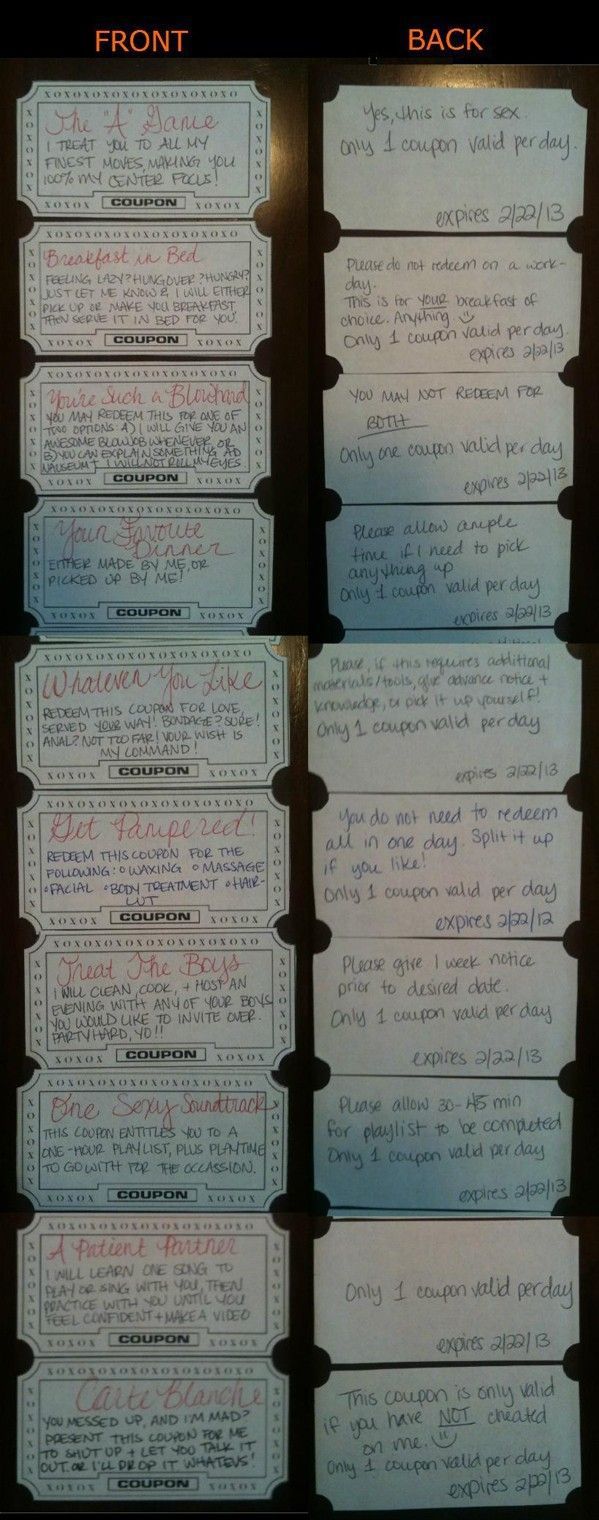 FRONT
BACK
XOXOXOXOXOXOXOXOXO
The "A" Game
I TREAT YOU TO ALL MY
FINEST MOVES, MAKING YOU
100% MY CENTER FOCUS!
XOXOX COUPON XOXOX
Yes, this is for sex.
Only 1 coupon valid per day.
expires 2/22/13
XOXOXOXOXOXOXOXOXO
Breakfast in Bed
FEELING LAZY? HUNGOVER? HUNGRY?
JUST LET ME KNOW & I WILL EITHER
PICK UP OR MAKE YOU BREAKFAST
THEN SERVE IT IN BED FOR YOU.
XOXOX COUPON XOXOX
Please do not redeem on a work-
day.
This is for YOUR breakfast of
choice. Anything
Only 1 coupon valid per day.
expires 2/22/13
XOXOXOXOXOXOXOXOXO
You're Such a Blowhard
YOU MAY REDEEM THIS FOR ONE OF
TWO OPTIONS: A) I WILL GIVE YOU AN
AWESOME BLOWJOB WHENEVER, OR
B) YOU CAN EXPLAIN SOMETHING AD
NAUSEUM + I WILL NOT ROLL MY EYES.
XOXOX COUPON XOXOX
YOU MAY NOT REDEEM FOR
BOTH
Only one coupon valid per day
expires 2/22/13
XOXOXOXOXOXOXOXOXO
Your Favorite
Dinner
EITHER MADE BY ME, OR
PICKED UP BY ME!
XOXOX COUPON XOXOX
Please allow ample
time if I need to pick
anything up
Only 1 coupon valid per day
expires 2/22/13
XOXOXOXOXOXOXOXOXO
Whatever You Like
REDEEM THIS COUPON FOR LOVE,
SERVED YOUR WAY! BONDAGE? SURE!
ANAL? NOT TOO FAR! YOUR WISH IS
MY COMMAND!
XOXOX COUPON XOXOX
Please, if this requires additional
materials/tools, give advance notice +
knowledge, or pick it up yourself!
Only 1 coupon valid per day
expires 2/22/13
XOXOXOXOXOXOXOXOXO
Get Pampered!
REDEEM THIS COUPON FOR THE
FOLLOWING: WAXING MASSAGE
FACIAL BODY TREATMENT HAIR-
CUT
XOXOX COUPON XOXOX
You do not need to redeem
all in one day. Split it up
if you like!
Only 1 coupon valid per day
expires 2/22/12
XOXOXOXOXOXOXOXOXO
Treat The Boys
I WILL CLEAN, COOK, + HOST AN
EVENING WITH ANY OF YOUR BOYS
YOU WOULD LIKE TO INVITE OVER.
PARTY HARD, YO!!
XOXOX COUPON XOXOX
Please give 1 week notice
prior to desired date.
Only 1 coupon valid per day
expires 2/22/13
XOXOXOXOXOXOXOXOXO
One Sexy Soundtrack
THIS COUPON ENTITLES YOU TO A
ONE-HOUR PLAYLIST, PLUS PLAYTIME
TO GO WITH FOR THE OCCASSION.
XOXOX COUPON XOXOX
Please allow 30-45 min
for playlist to be completed
Only 1 coupon valid per day
expires 2/22/13
XOXOXOXOXOXOXOXOXO
A Patient Partner
I WILL LEARN ONE SONG TO
PLAY OR SING WITH YOU, THEN
PRACTICE WITH YOU UNTIL YOU
FEEL CONFIDENT + MAKE A VIDEO
XOXOX COUPON XOXOX
Only 1 coupon valid per day
expires 2/22/13
XOXOXOXOXOXOXOXOXO
Carte Blanche
YOU MESSED UP, AND I'M MAD?
PRESENT THIS COUPON FOR ME
TO SHUT UP + LET YOU TALK IT
OUT. OR I'LL DROP IT WHATEVS!
XOXOX COUPON XOXOX
This coupon is only valid
if you have NOT cheated
on me.
Only 1 coupon valid per day
expires 2/22/13